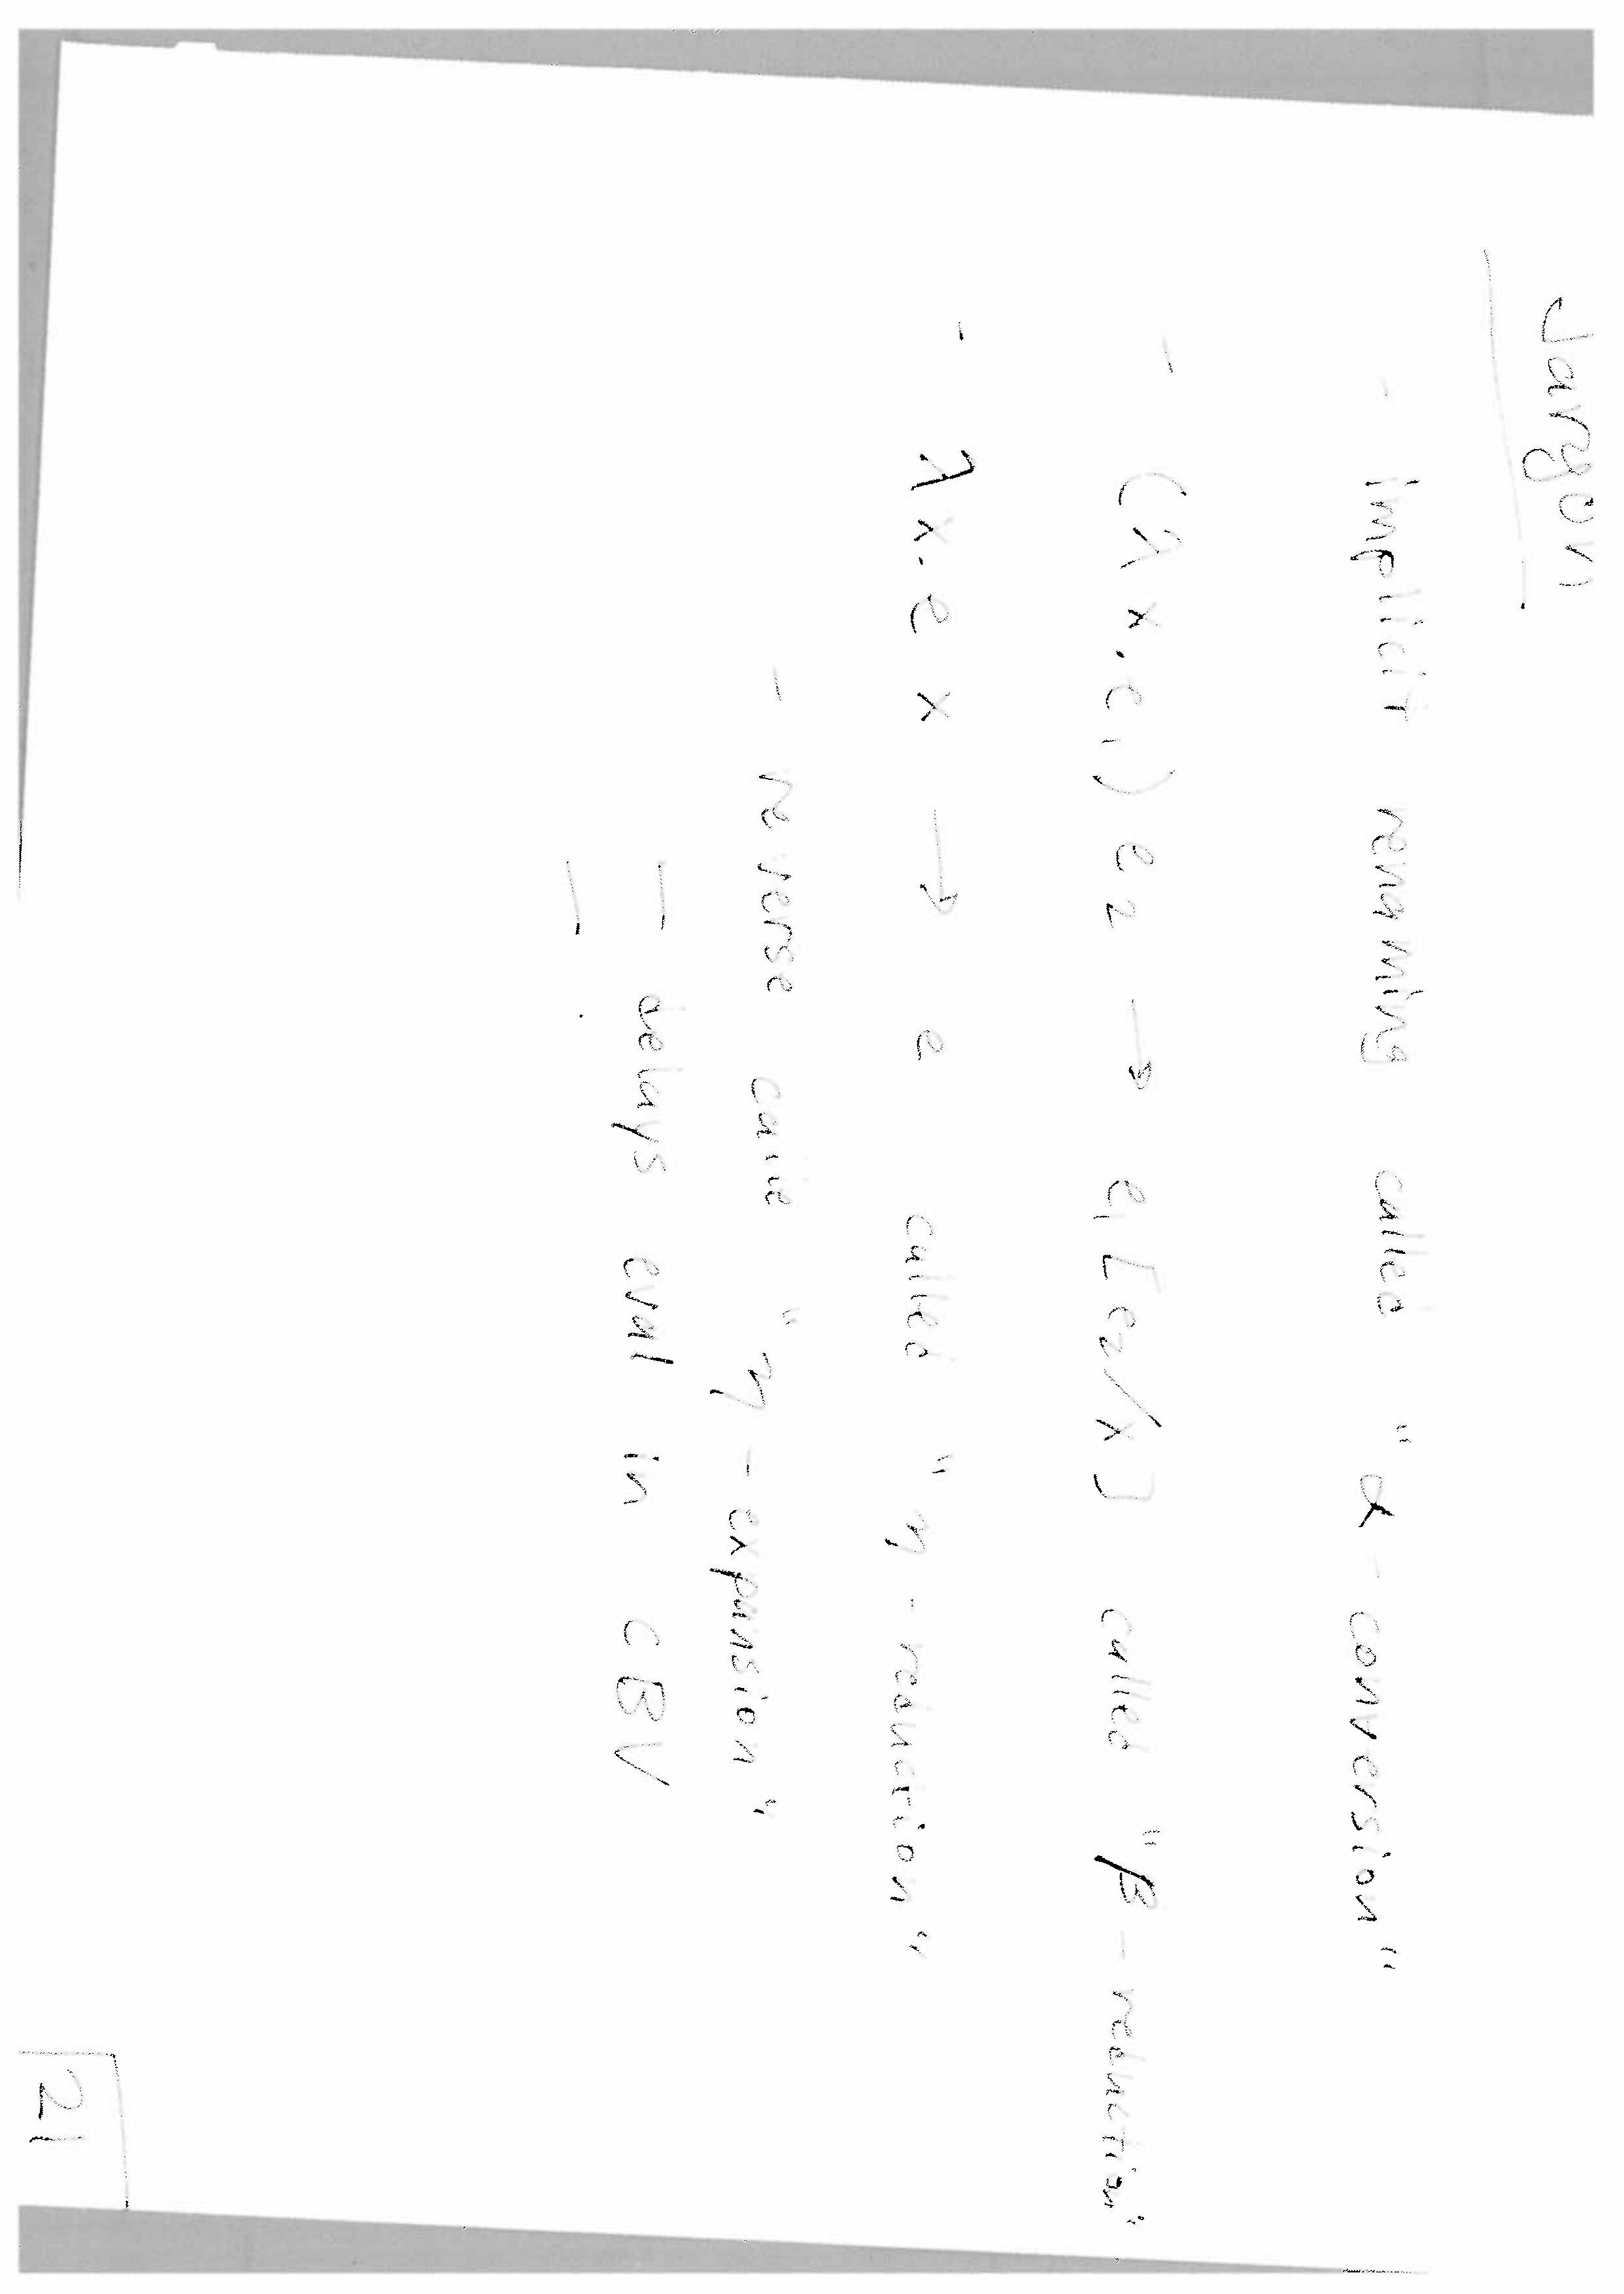 Jargon
- implicit renaming called "α-conversion"
- (λx.e₁) e₂ → e₁[e₂/x] called "β-reduction"
- λx.e x → e called "η-reduction"
- reverse called "η-expansion"
- delays eval in CBV
- .
21